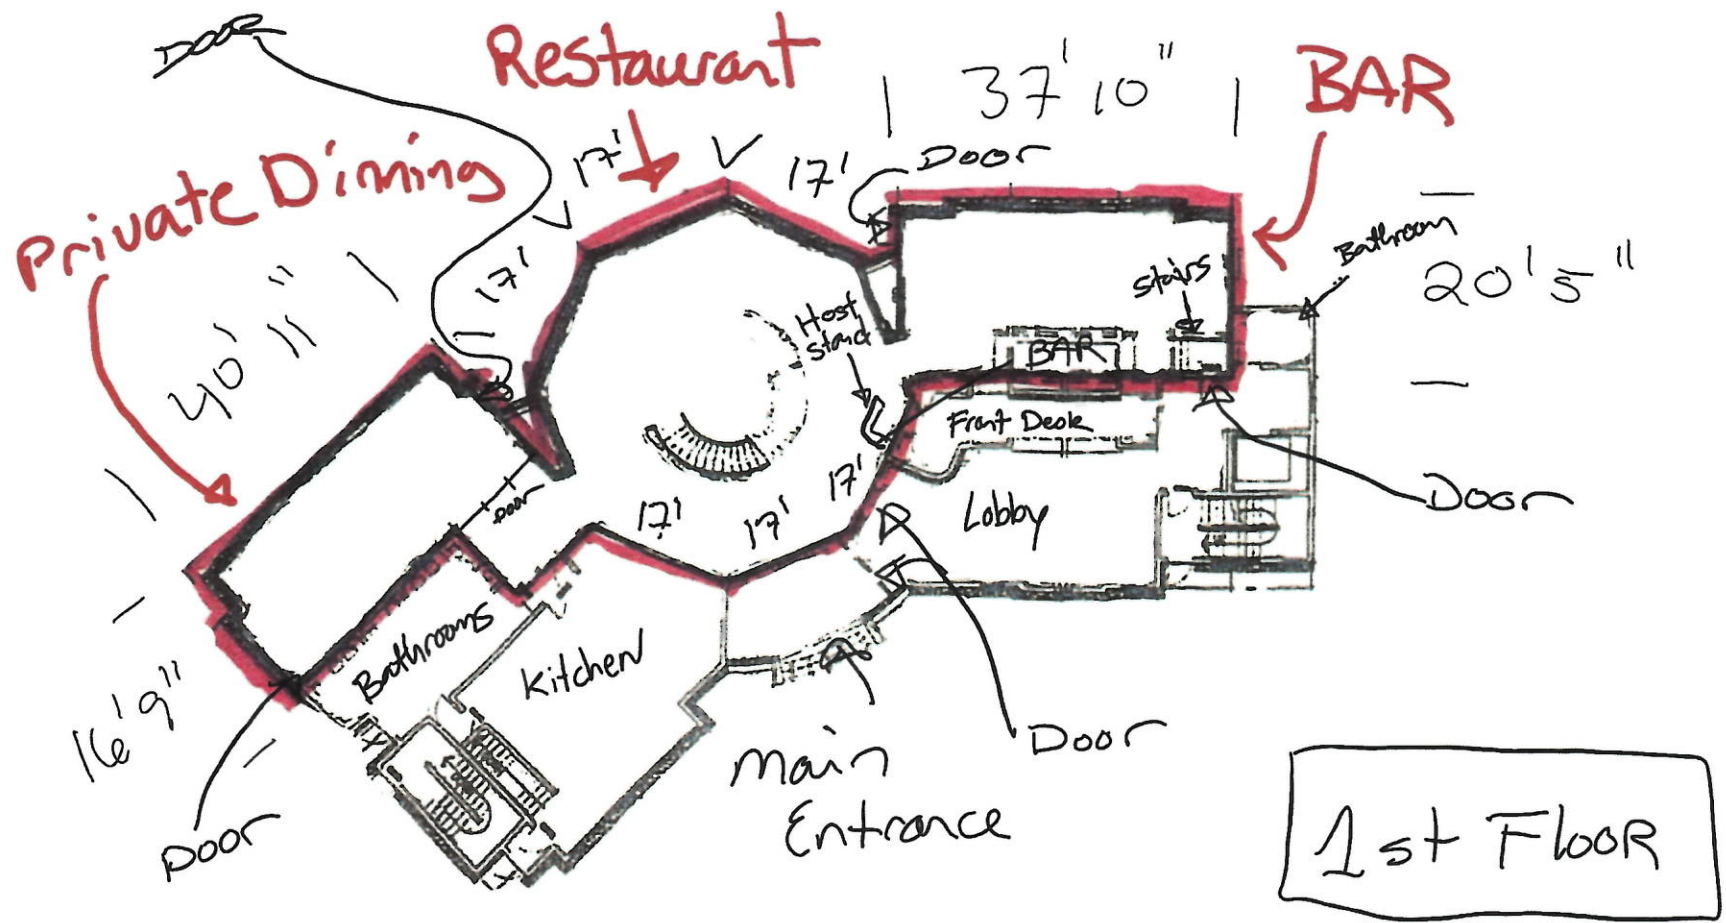 Door
Restaurant
37'10"
BAR
17'
17'
Door
Private Dining
17'
Bathroom
20'5"
stairs
Host
stand
40' 11"
BAR
Front Desk
17'
Door
Door
17'
17'
Lobby
Bathrooms
Kitchen
16'9"
Door
Main
Entrance
Door
1st Floor